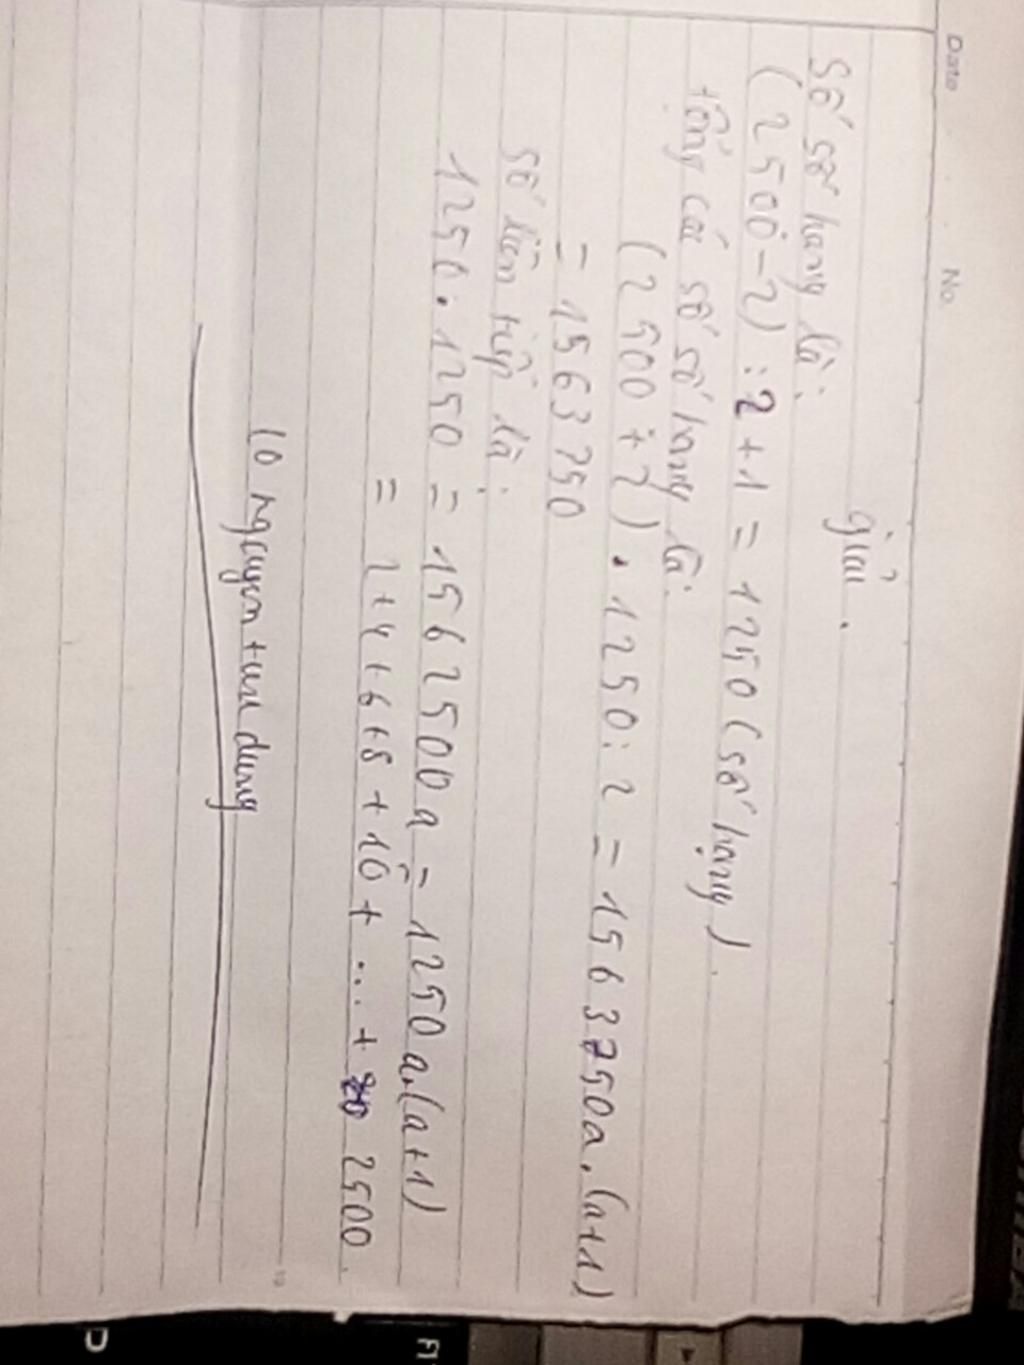 Date No.
giải.
Số số hạng là:
(2500-2):2+1=1250 (số hạng).
tổng các số số hạng là:
(2500+2).1250:2=1563750a.(a+1)
=1563750
số liên tiếp là:
1250.1250=1562500a=1250a.(a+1)
=2+4+6+8+10+...+ 2500.